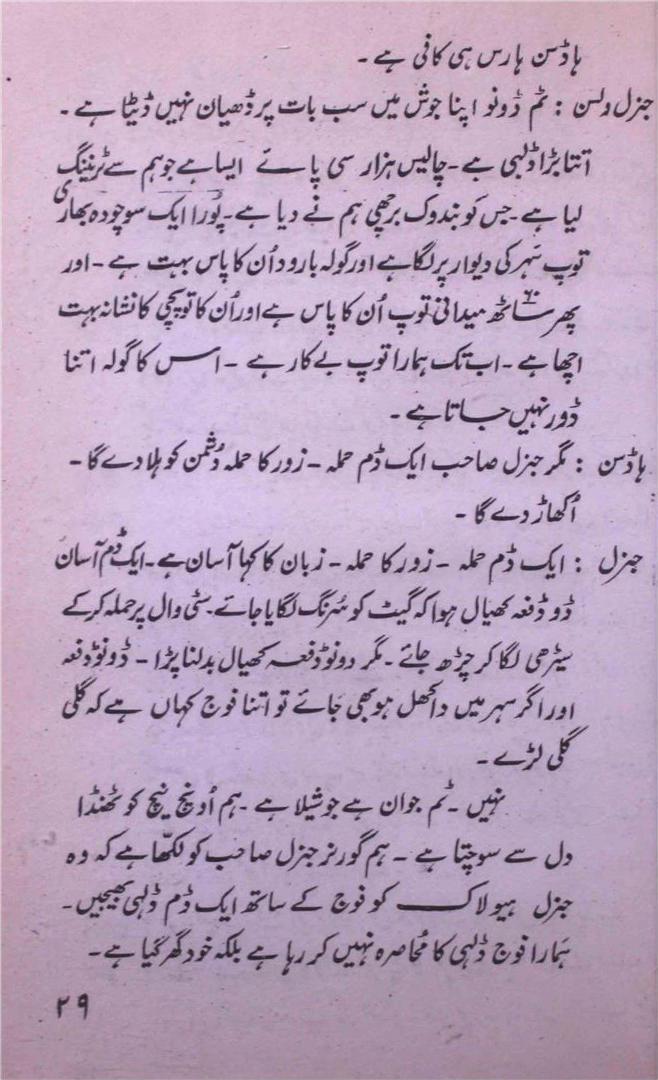 ہاڈسن ہارس ہی کافی ہے ۔
جنرل ولسن : ٹم ڈونو اپنا جوش میں سب بات پر ڈھیان نہیں ڈیٹا ہے ۔
اتنا بڑا ڈلہی ہے ۔ چالیس ہزار سی پائے ایسا ہے جو ہم سے ٹریننگ
لیا ہے ۔ جس کو بندوک برچھی ہم نے دیا ہے ۔ پُورا ایک سو چودہ بھاری
توپ شہر کی دیوار پر لگا ہے اور گولہ بارود اُن کا پاس بہت ہے ۔ اور
پھر ساٹھ ۶۰ میدانی توپ اُن کا پاس ہے اور اُن کا توپچی کا نشانہ بہت
اچھا ہے ۔ اب تک ہمارا توپ بے کار ہے ۔ اس کا گولہ اتنا
ڈور نہیں جاتا ہے ۔
ہاڈسن : مگر جنرل صاحب ایک ڈم حملہ ۔ زور کا حملہ دُشمن کو ہلا دے گا ۔
اُکھاڑ دے گا ۔
جنرل : ایک ڈم حملہ ۔ زور کا حملہ ۔ زبان کا کہا آسان ہے ۔ ایک ڈم آسان
ڈو ڈفعہ کھیال ہوا کہ گیٹ کو سُرنگ لگایا جائے ۔ سٹی وال پر حملہ کر کے
سیڑھی لگا کر چڑھ جائے ۔ مگر دونو ڈفعہ کھیال بدلنا پڑا ۔ ڈونو ڈفعہ
اور اگر سہر میں داکھل ہو بھی جائے تو اتنا فوج کہاں ہے کہ گلی
گلی لڑے ۔
نہیں ۔ ٹم جوان ہے جوشیلا ہے ۔ ہم اُونچ نیچ کو ٹھنڈا
دل سے سوچتا ہے ۔ ہم گورنر جنرل صاحب کو لکھّا ہے کہ وہ
جنرل ہیولاک کو فوج کے ساتھ ایک ڈم ڈلہی بھیجیں ۔
ہمارا فوج ڈلہی کا مُحاصرہ نہیں کر رہا ہے بلکہ خود گھر گیا ہے ۔
۲۹